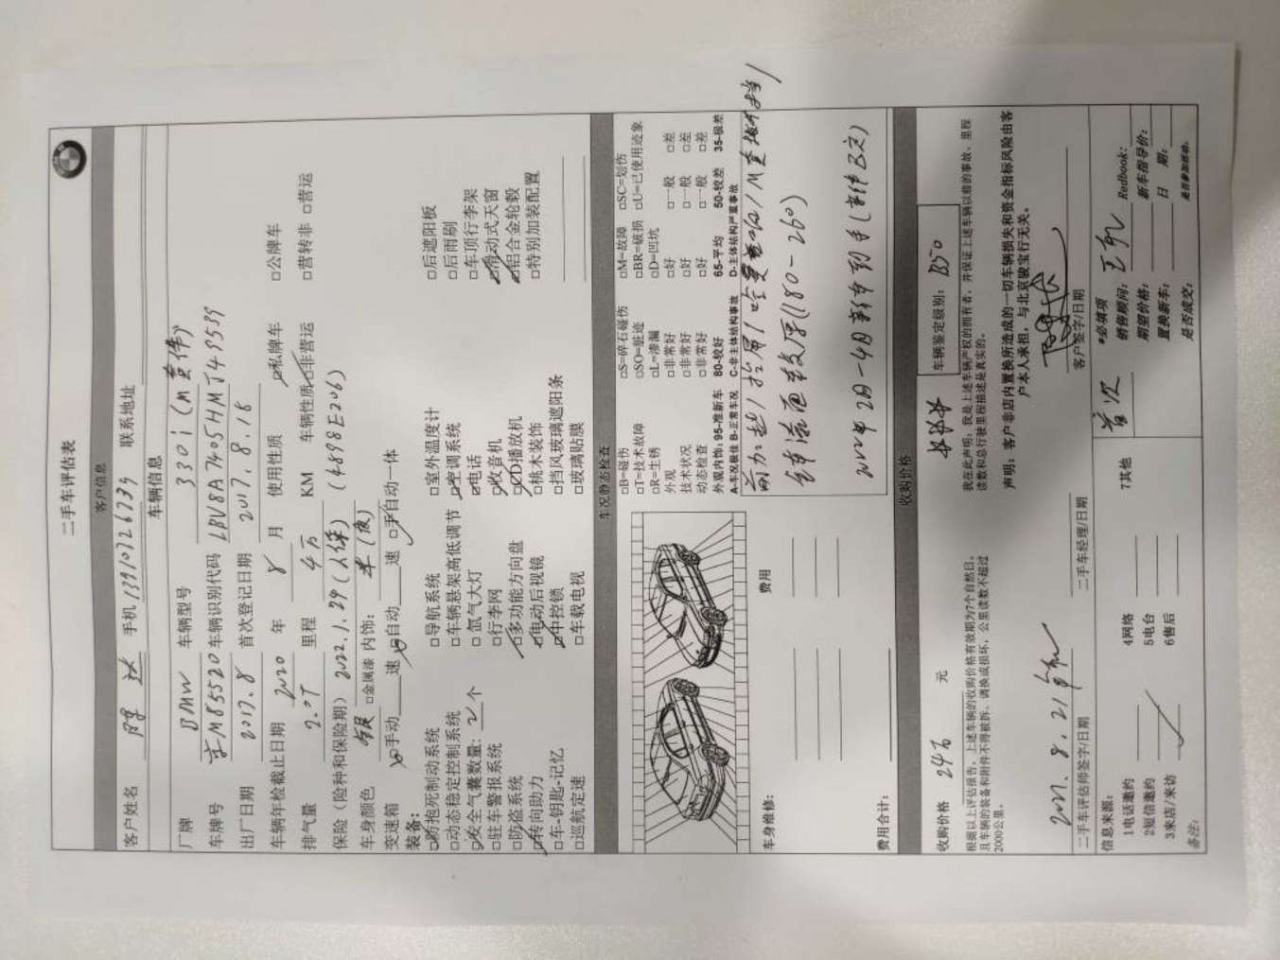 二手车评估表
客户信息
客户姓名 手机 13910726374 联系地址
车辆信息
厂牌 BMW 车辆型号 330i (M
车牌号 京M85520 车辆识别代码 LBV8A7405HMJ49559
出厂日期 2017.8 首次登记日期 2017.8.18
车辆年检截止日期 2020 年 8 月 使用性质 □私牌车 □公牌车
排气量 2.0T 里程 4万 KM 车辆性质 □非营运 □营转非 □营运
保险(险种和保险期) 2022.1.29 (人保) (4698E206)
车身颜色 银 □金属漆 内饰: 米 (皮)
变速箱 □手动 速 □自动 速 □手自动一体
装备:
□防抱死制动系统 □导航系统 □室外温度计 □后遮阳板
□动态稳定控制系统 □车辆悬架高低调节 □空调系统 □后雨刷
□安全气囊数量: 个 □氙气大灯 □电话 □车顶行李架
□驻车警报系统 □行李网 □收音机 □滑动式天窗
□防盗系统 □多功能方向盘 □CD播放机 □铝合金轮毂
□转向助力 □电动后视镜 □桃木装饰 □特别加装配置
□车-钥匙-记忆 □中控锁 □挡风玻璃遮阳条
□巡航定速 □车载电视 □玻璃贴膜
车况静态检查
□B=碰伤 □S=碎石碰伤 □M=故障 □SC=划伤
□T=技术故障 □SO=脏迹 □BR=破损 □U=已使用迹象
□R=生锈 □L=渗漏 □D=凹坑
外观 □非常好 □好 □一般 □差
技术状况 □非常好 □好 □一般 □差
动态检查 □非常好 □好 □一般 □差
外观内饰: 95-准新车 80-较好 65-平均 50-较差 35-极差
A-车况极佳 B-正常车况 C-非主体结构事故 D-主体结构严重事故
车身维修: 费用
(180-260)
费用合计:
收购价格
收购价格 24万 元 车辆鉴定级别: B50
根据以上评估报告,上述车辆的收购价格有效期为7个自然日,
且车辆的装备和附件不得被拆、调换或损坏,公里读数不超过
2000公里。
我在此声明:我是上述车辆产权的拥有者,并保证上述车辆以前的事故、里程
读数和总行驶里程描述是真实的。
声明:客户非店内置换所造成的一切车辆损失和资金指标风险由客
户本人承担,与北京骏宝行无关。
2021.8.21
二手车评估师签字/日期 二手车经理/日期 客户签字/日期
信息来源: 首次 *必填项
1电话邀约 4网络 7其他 销售顾问: Redbook:
2短信邀约 5电台 期望价格: 新车指导价:
3来店/来访 6售后 置换新车: 日 期:
备注: 是否成交: